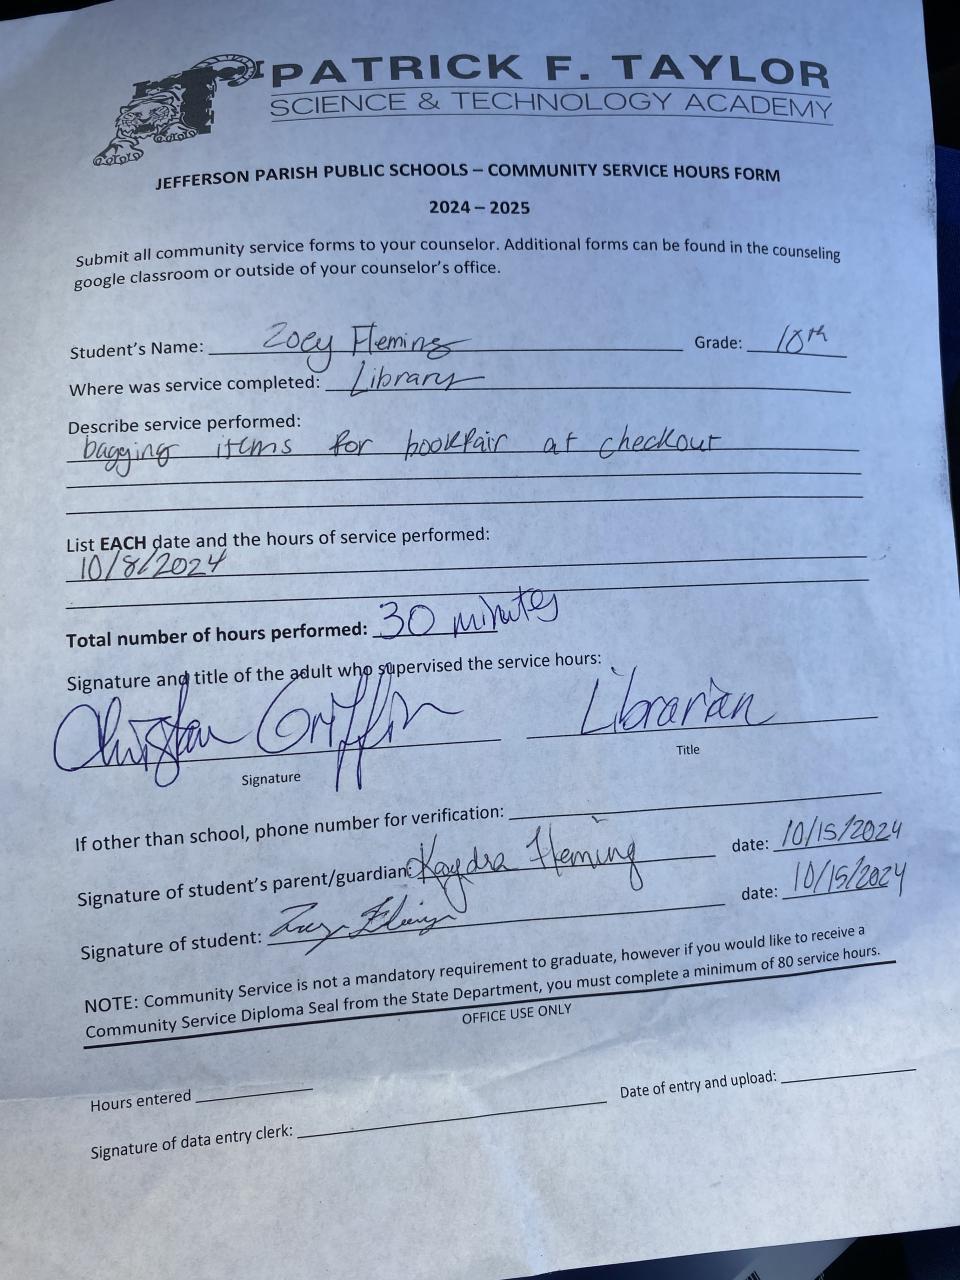 PATRICK F. TAYLOR
SCIENCE & TECHNOLOGY ACADEMY
JEFFERSON PARISH PUBLIC SCHOOLS – COMMUNITY SERVICE HOURS FORM
2024 – 2025
Submit all community service forms to your counselor. Additional forms can be found in the counseling
google classroom or outside of your counselor's office.
Student's Name: Zoey Fleming Grade: 10th
Where was service completed: Library
Describe service performed:
bagging items for bookfair at checkout
List EACH date and the hours of service performed:
10/8/2024
Total number of hours performed: 30 minutes
Signature and title of the adult who supervised the service hours:
Christian Griffin Librarian
Signature Title
If other than school, phone number for verification:
Signature of student's parent/guardian: Kaydra Fleming date: 10/15/2024
Signature of student: Zoey Fleming date: 10/15/2024
NOTE: Community Service is not a mandatory requirement to graduate, however if you would like to receive a
Community Service Diploma Seal from the State Department, you must complete a minimum of 80 service hours.
OFFICE USE ONLY
Hours entered Date of entry and upload:
Signature of data entry clerk: